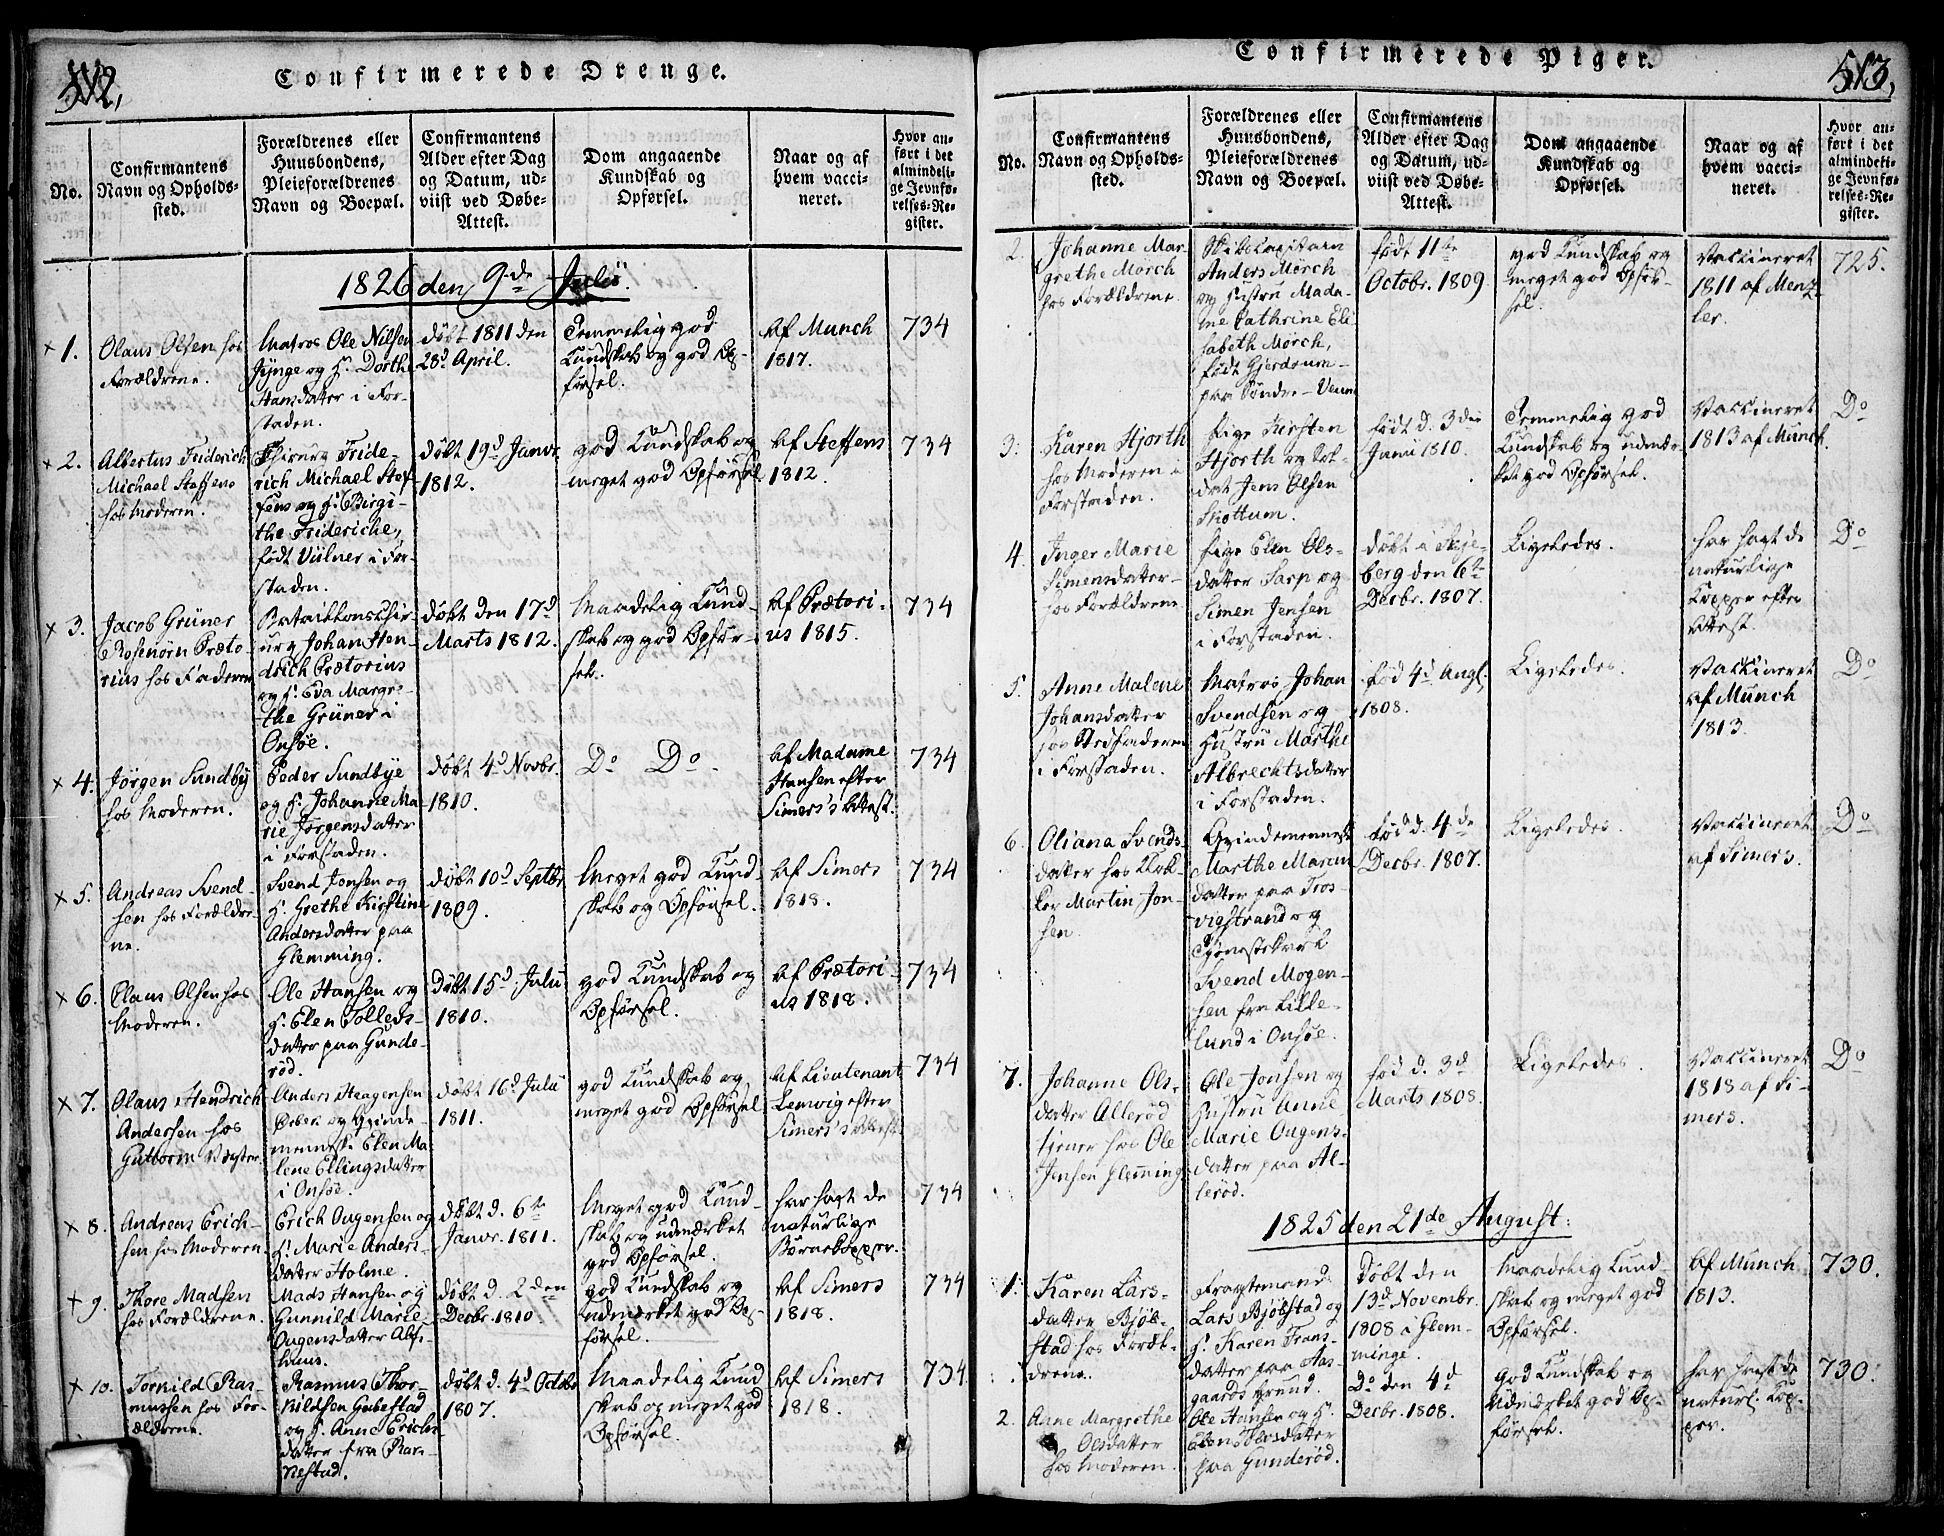 512,
Confirmerede Drenge.
No.
Confirmantens
Navn og Opholds-
sted.
Forældrenes eller
Huusbondens,
Pleieforældrenes
Navn og Boepæl.
Confirmantens
Alder efter Dag
og Datum, ud-
viist ved Døbe-
Attest.
Dom angaaende
Kundskab og
Opførsel.
Naar og af
hvem vacci-
neret.
Hvor an-
ført i det
almindeli-
ge Jevnfø-
relses-Re-
gister.
1826 den 9de Julii.
x 1.
Olaus Olsen hos
Forældrene.
Matros Ole Nilsen
Gynge og H. Dorthe
Hansdatter i For-
staden.
døbt 1811 den
28d April.
Temmelig god
Kundskab og god Op-
førsel.
Af Munch
1817.
734
x 2.
Albertus Friderich
Michael Steffens
hos Moderen.
Chirurg Fride-
rich Michael Stef-
fens og H. Birgi-
the Frideriche,
født Vülner i For-
staden.
døbt 19d Janvr.
1812.
god Kundskab og
meget god Opførsel
Af Steffens
1812.
734
x 3.
Jacob Grüner
Rosenörn Præto-
rius hos Faderen
Bataillonschir-
urg Johan Hen-
drich Prætorius
og H. Eva Margre-
the Grüner i
Onsøe.
døbt den 17d
Marts 1812.
Maadelig Kund-
skab og god Opfør-
sel.
Af Prætori-
us 1815.
734
x 4.
Jörgen Sundby
hos Moderen.
Peder Sundbye
og H. Johanne Ma-
rie Jörgensdatter
i Forstaden.
døbt 4d Novbr.
1810.
Do Do
Af Madame
Hansen efter
Simers's Attest.
734
x 5.
Andreas Svend-
sen hos Forældre-
ne.
Svend Jonsen og
H. Grethe Kirstine
Andersdatter paa
Glemming.
døbt 10d Septbr.
1809.
Meget god Kund-
skab og Opførsel.
Af Simers
1818.
734
x 6.
Claus Olsen hos
Moderen.
Ole Hansen og
H. Elen Tolleds-
datter paa Gunde-
röd.
Døbt 15d. Julii
1810.
god Kundskab og
Opførsel.
Af Prætori-
us 1818.
734
x 7.
Olaus Hendrich
Andersen hos
Guttorm
Anders Haagensen
og Qvinde-
menneske Elen Ma-
lene Ellingsdatter
i Onsøe.
døbt 16d Julii
1811.
god Kundskab og
meget god Opførsel
Af Lieutenant
Lemvig efter
Simers's Attest
734
x 8.
Andreas Erich-
sen hos Moderen.
Erich Ougensen og
H. Marie Anders-
datter Holme.
døbt d. 6te
Janvr. 1811.
Meget god Kund-
skab og udmærket
god Opførsel.
har havt de
naturlige
Børnekopper.
734
x 9.
Thore Madsen
hos Forældrene.
Mads Hansen og
Gunnild Marie
Ougensdatter
døbt d. 2den
Decbr. 1810.
god Kundskab og
udmærket god Op-
førsel.
Af Simers
1818.
734
x 10.
Torkild Ras-
mussen hos For-
ældrene.
Rasmus Thor-
kildsen Gubestad
og H. Anne Erichs-
datter fra Ram-
nestad.
døbt d. 4d Octobr
1807.
Maadelig Kund
skab og meget god
Opførsel.
Af Simers
1818.
734.
Confirmerede Piger.
513,
No.
Confirmantens
Navn og Opholds-
sted.
Forældrenes eller
Huusbondens,
Pleieforældrenes
Navn og Boepæl.
Confirmantens
Alder efter Dag
og Datum, ud-
viist ved Døbe-
Attest.
Dom angaaende
Kundskab og
Opførsel.
Naar og af
hvem vacci-
neret.
Hvor an-
ført i det
almindeli-
ge Jevnfø-
relses-Re-
gister.
2.
Johanne Mar-
grethe Mörch
hos Forældrene.
Skibscapitain
Anders Mörch
og Hustru Mada-
me Cathrine Eli
sabeth Mörch,
født Gjerdrum
paa Søndre-
født 11te
Octobr. 1809
god Kundskab og
meget god Opfør-
sel.
Vaccineret
1811 af Menz-
ler.
725.
3.
Karen Hjorth
hos Moderen i
Forstaden.
Pige Kirsten
Hjorth og Sol-
dat Jens Olsen
Skottum.
født d. 3die
Junii 1810.
Temmelig god
Kundskab og udmær-
ket god Opførsel.
Vaccineret
1813 af Munch
Do
4.
Inger Marie
Simensdatter
hos Forældrene
Pige Elen Ols-
datter Sarp og
Simen Jensen
i Forstaden.
døbt i Skje-
berg den 6te
Decbr. 1807.
Ligeledes.
har havt de
naturlige
Kopper efter
Attest.
Do
5.
Anne Malene
Johansdatter
hos Stedfaderen
i Forstaden.
Matros Johan
Svendsen og
Hustru Marthe
Albrechtsdatter
i Forstaden.
fød 4d Augl.
1808.
Ligeledes.
Vaccineret
af Münch
1813.
Do
6.
Oliana Svends-
datter hos Klok-
ker Martin Jon-
sen.
Qvindemenneske
Marthe Marcus
datter paa Tros-
vigstrand og
Tjenestekarl
Svend Mogen-
sen fra Lille-
lund i Onsøe.
fød d. 4de
Decbr. 1807.
Ligeledes.
Vaccineret
af Simers.
Do
7.
Johanne Ols-
datter Alleröd
tjener hos Ole
Jensen Glemming
Ole Jonsen og
Hustru Anne
Marie Ougens-
datter paa Al-
leröd.
fød d. 3d
Marts 1808.
Ligeledes.
Vaccineret
1818 af Si-
mers.
Do
1825 den 21de August:
1.
Karen Lars-
datter Bjöl-
stad hos Foræl-
drene.
Fragtemand
Lars Bjölstad og
H. Karen Frans-
datter paa Aas-
gaards grund.
Døbt den
13d Novembr.
1808 i Glem-
minge.
Maadelig Kund-
skab og meget god
Opførsel.
Af Munch
1813.
730.
2.
Anne Margrethe
Olsdatter
hos Moderen.
Ole Hansen og H.
datter
paa Gunderöd.
Do den 4d
Decbr. 1808.
God Kundskab og
Udmærket god Op-
førsel.
har havt de
naturl. Kop-
per.
730.